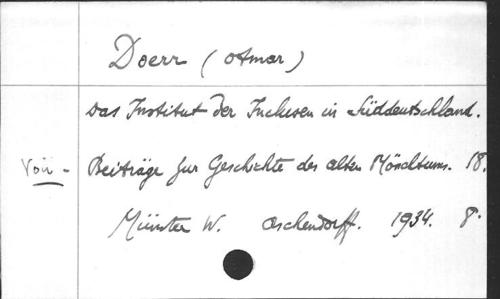 Doerr (Otmar)
Das Institut der Inclusen in Süddeutschland.
Voir - Beiträge zur Geschichte des alten Mönchtums. 18.
Münster W. Aschendorff. 1934. 8°